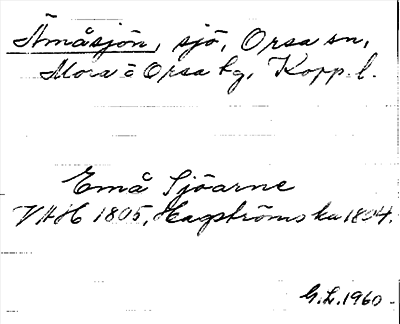 Ämåsjön, sjö, Orsa sn,
Mora o Orsa hg, Kopp. l.
Emå Sjöarne
VAH 1805, Hagströms ka 1804.
G.L. 1960